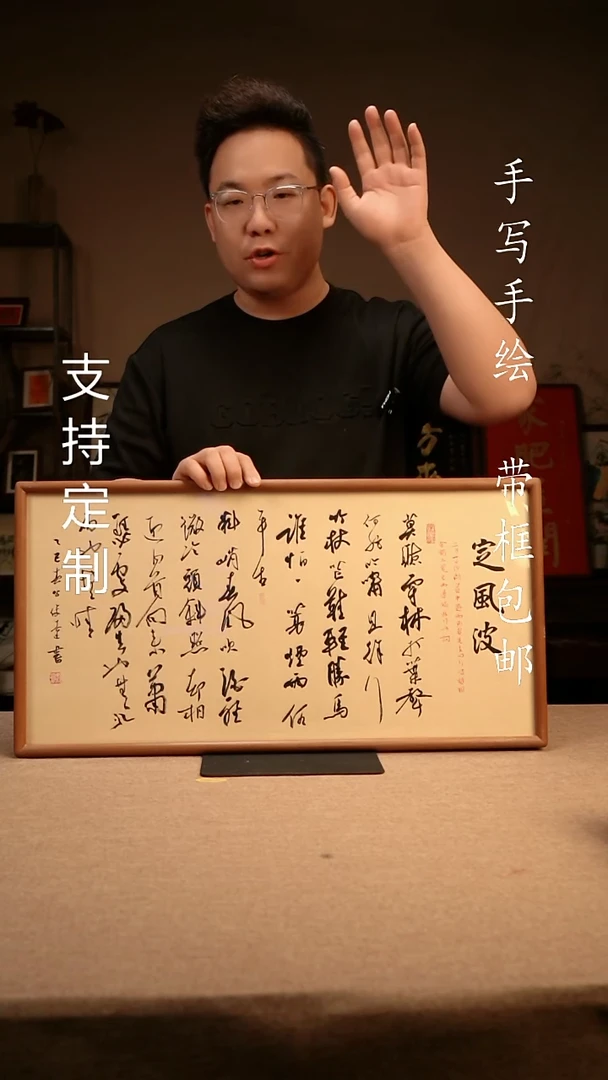 手写手绘 带框包邮
支持定制
定风波
莫听穿林打葉聲
何妨吟嘯且徐行
竹杖芒鞋輕勝馬
誰怕一蓑煙雨任
平生
料峭春風吹酒醒
微冷山頭斜照却相
迎回首向来蕭
瑟處歸去也無風
雨也無晴